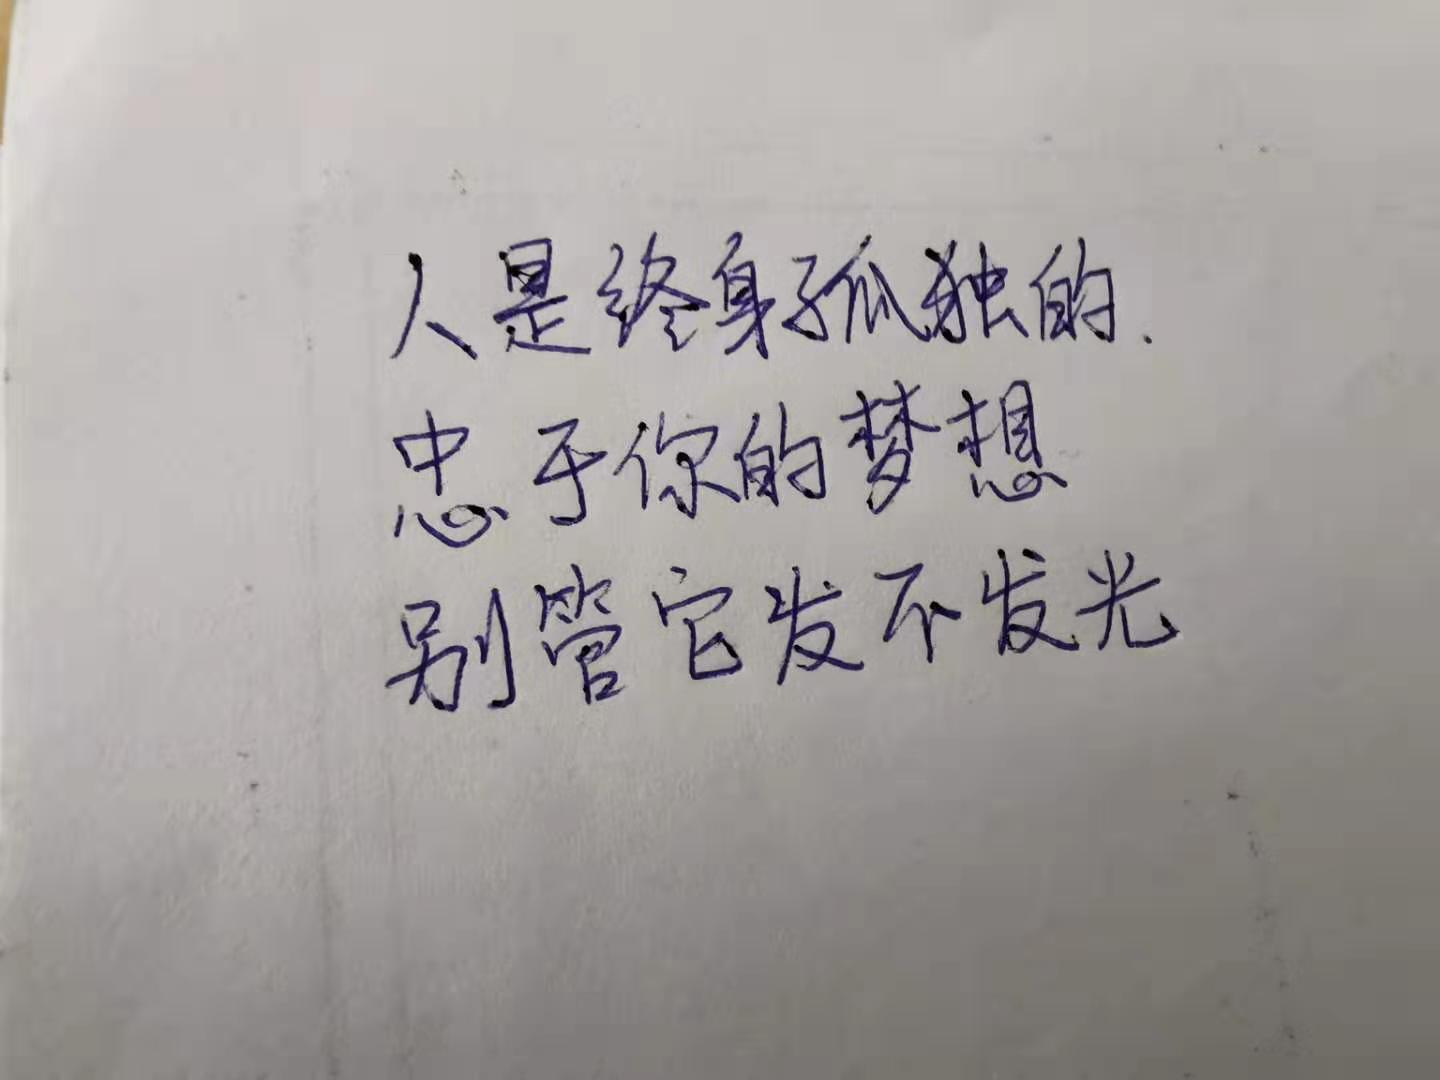 人是终身孤独的.
忠于你的梦想
别管它发不发光